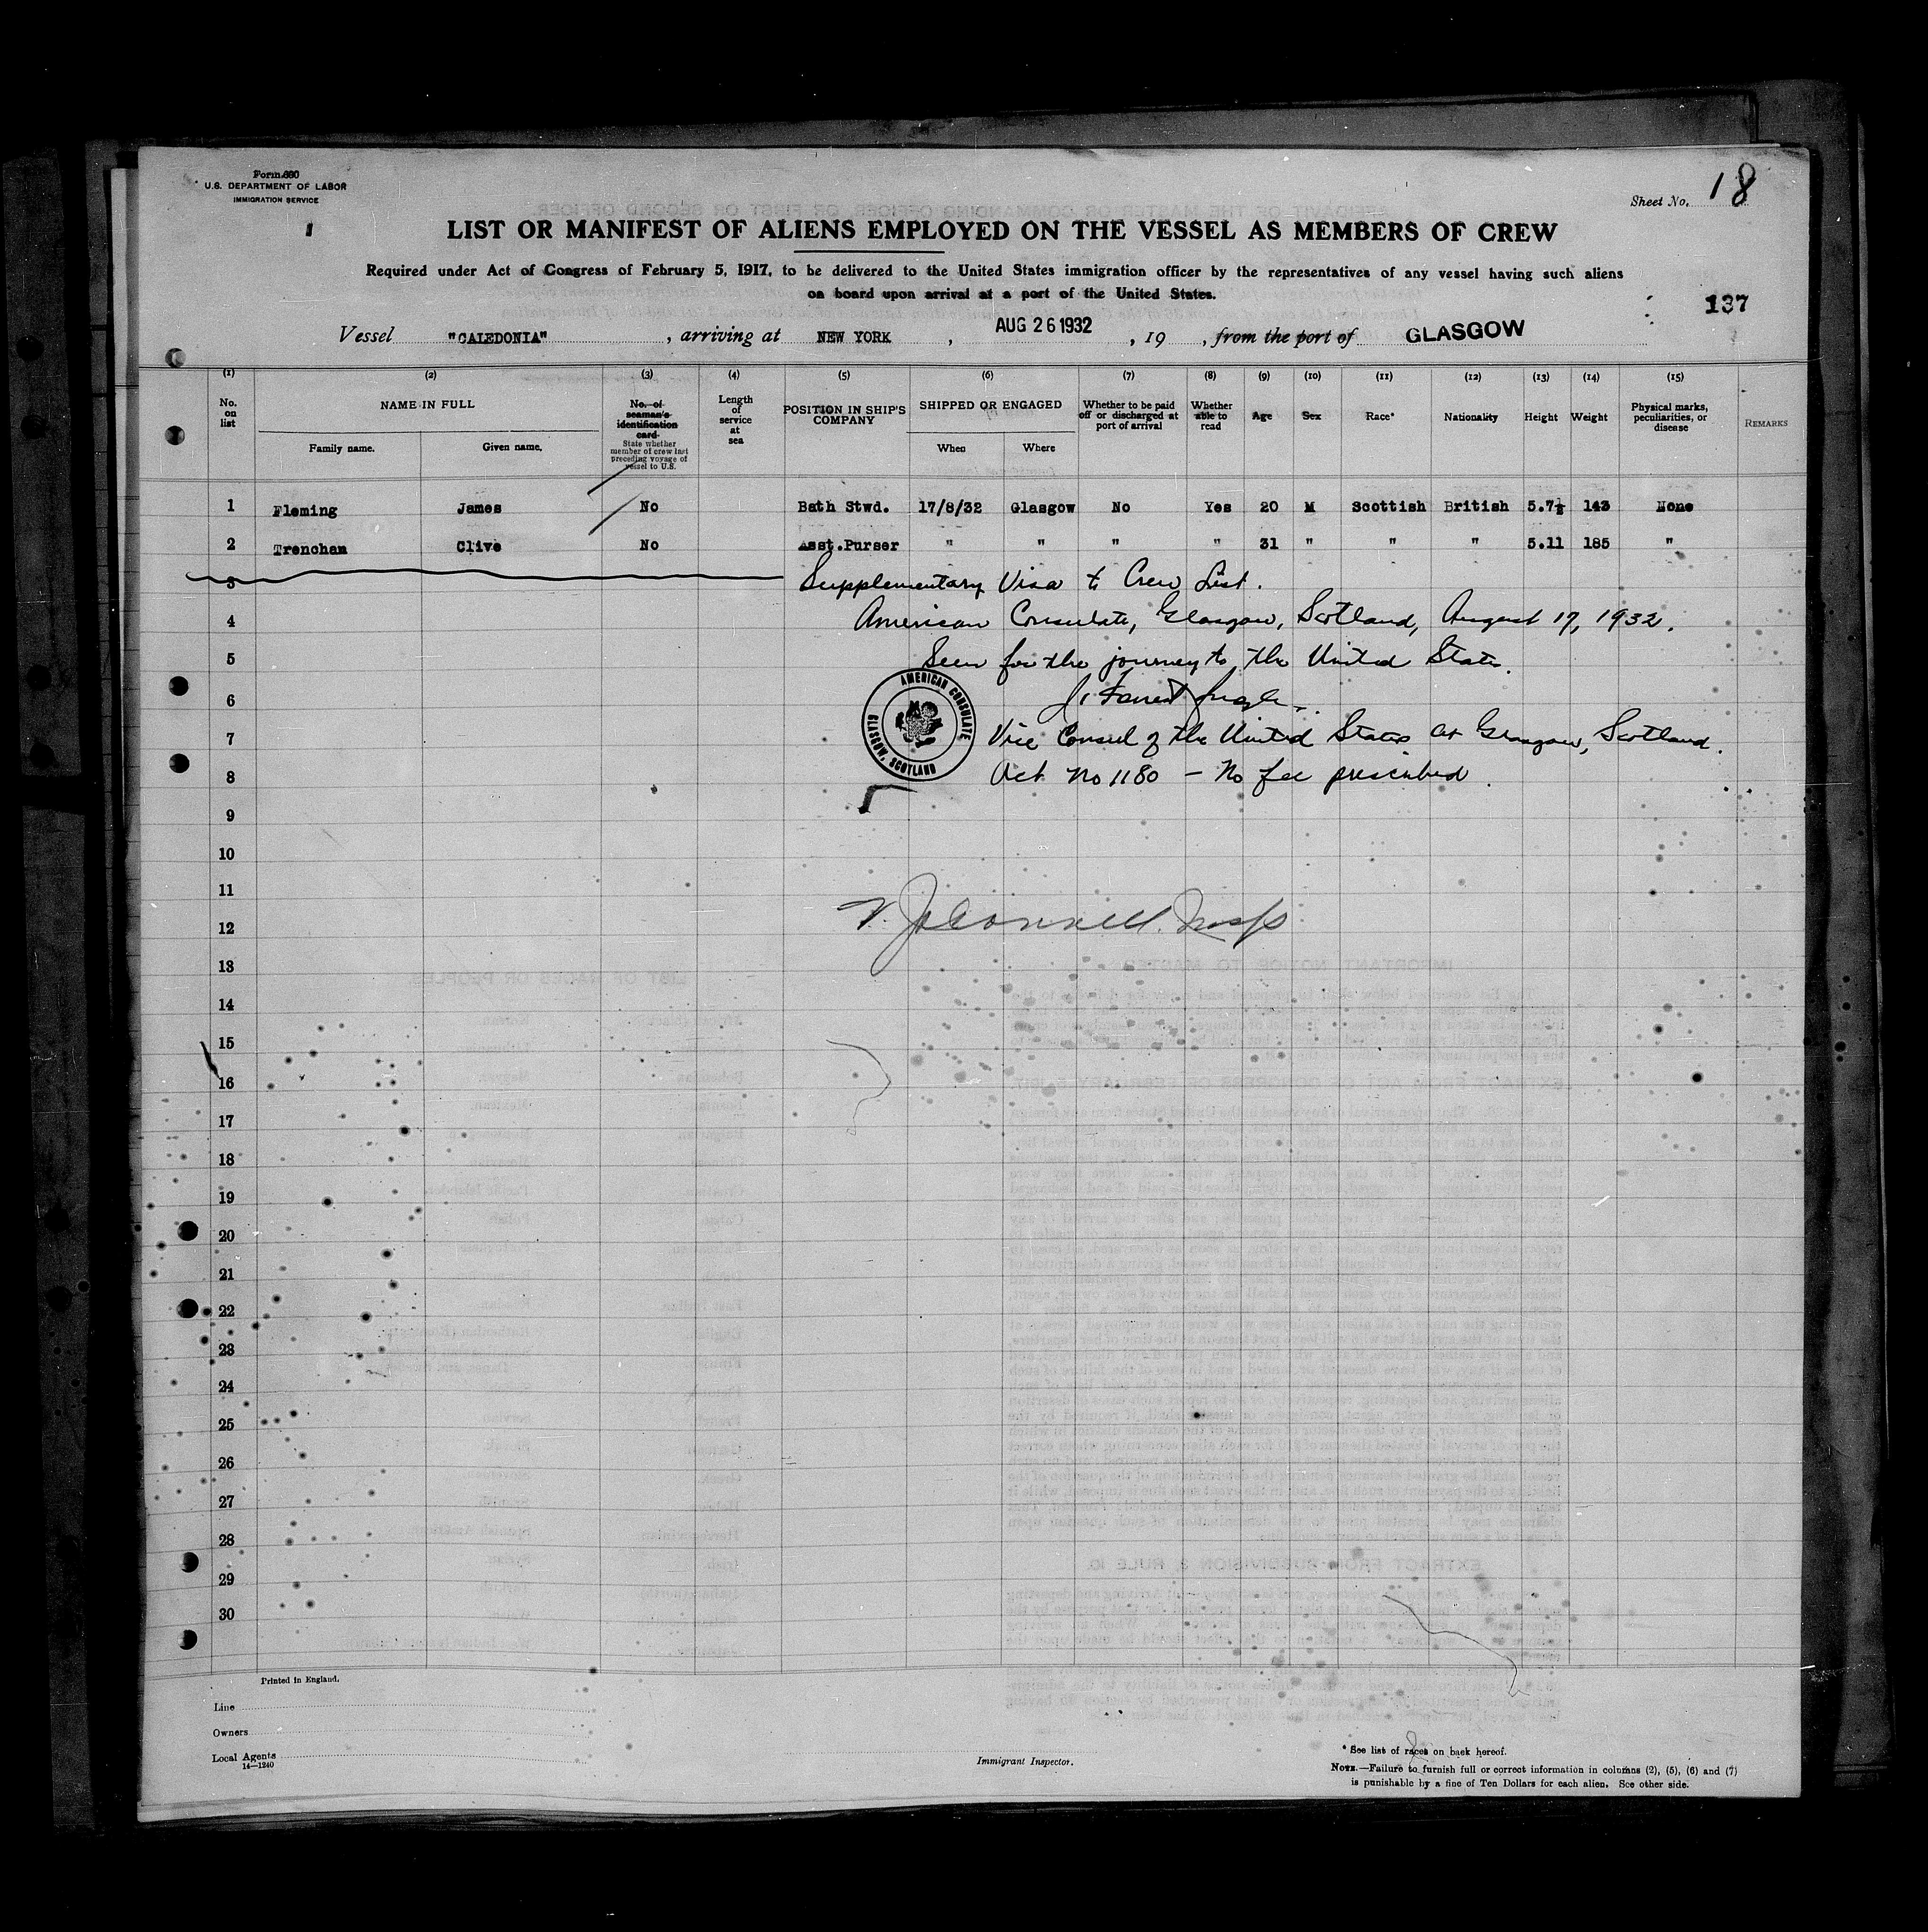 Form 680
U.S. DEPARTMENT OF LABOR
IMMIGRATION SERVICE
1
Sheet No. 18
LIST OR MANIFEST OF ALIENS EMPLOYED ON THE VESSEL AS MEMBERS OF CREW
Required under Act of Congress of February 5, 1917, to be delivered to the United States immigration officer by the representatives of any vessel having such aliens
on board upon arrival at a port of the United States.
137
Vessel "CALEDONIA", arriving at NEW YORK, AUG 26 1932, 19 , from the port of GLASGOW
(1) (2) (3) (4) (5) (6) (7) (8) (9) (10) (11) (12) (13) (14) (15)
No. on list
NAME IN FULL
Family name.
Given name.
No. of seaman's identification card.
State whether member of crew last preceding voyage of vessel to U.S.
Length of service at sea
POSITION IN SHIP'S COMPANY
SHIPPED OR ENGAGED
When
Where
Whether to be paid off or discharged at port of arrival
Whether able to read
Age
Sex
Race*
Nationality
Height
Weight
Physical marks, peculiarities, or disease
REMARKS
1 Fleming James No Bath Stwd. 17/8/32 Glasgow No Yes 20 M Scottish British 5.7½ 143 None
2 Trenchan Clive No Asst.Purser " " " " 31 " " " 5.11 185 "
3 Supplementary Visa to Crew List.
4 American Consulate, Glasgow, Scotland, August 17, 1932.
5 Seen for the journey to the United States.
6
AMERICAN CONSULATE
GLASGOW, SCOTLAND
7 Vice Consul of the United States at Glasgow, Scotland.
8 Act No 1180 – No fee prescribed.
9
10
11
12
13
14
15
16
17
18
19
20
21
22
23
24
25
26
27
28
29
30
Printed in England.
Line
Owners
Local Agents
14—1240
Immigrant Inspector.
* See list of races on back hereof.
NOTE.—Failure to furnish full or correct information in columns (2), (5), (6) and (7)
is punishable by a fine of Ten Dollars for each alien. See other side.